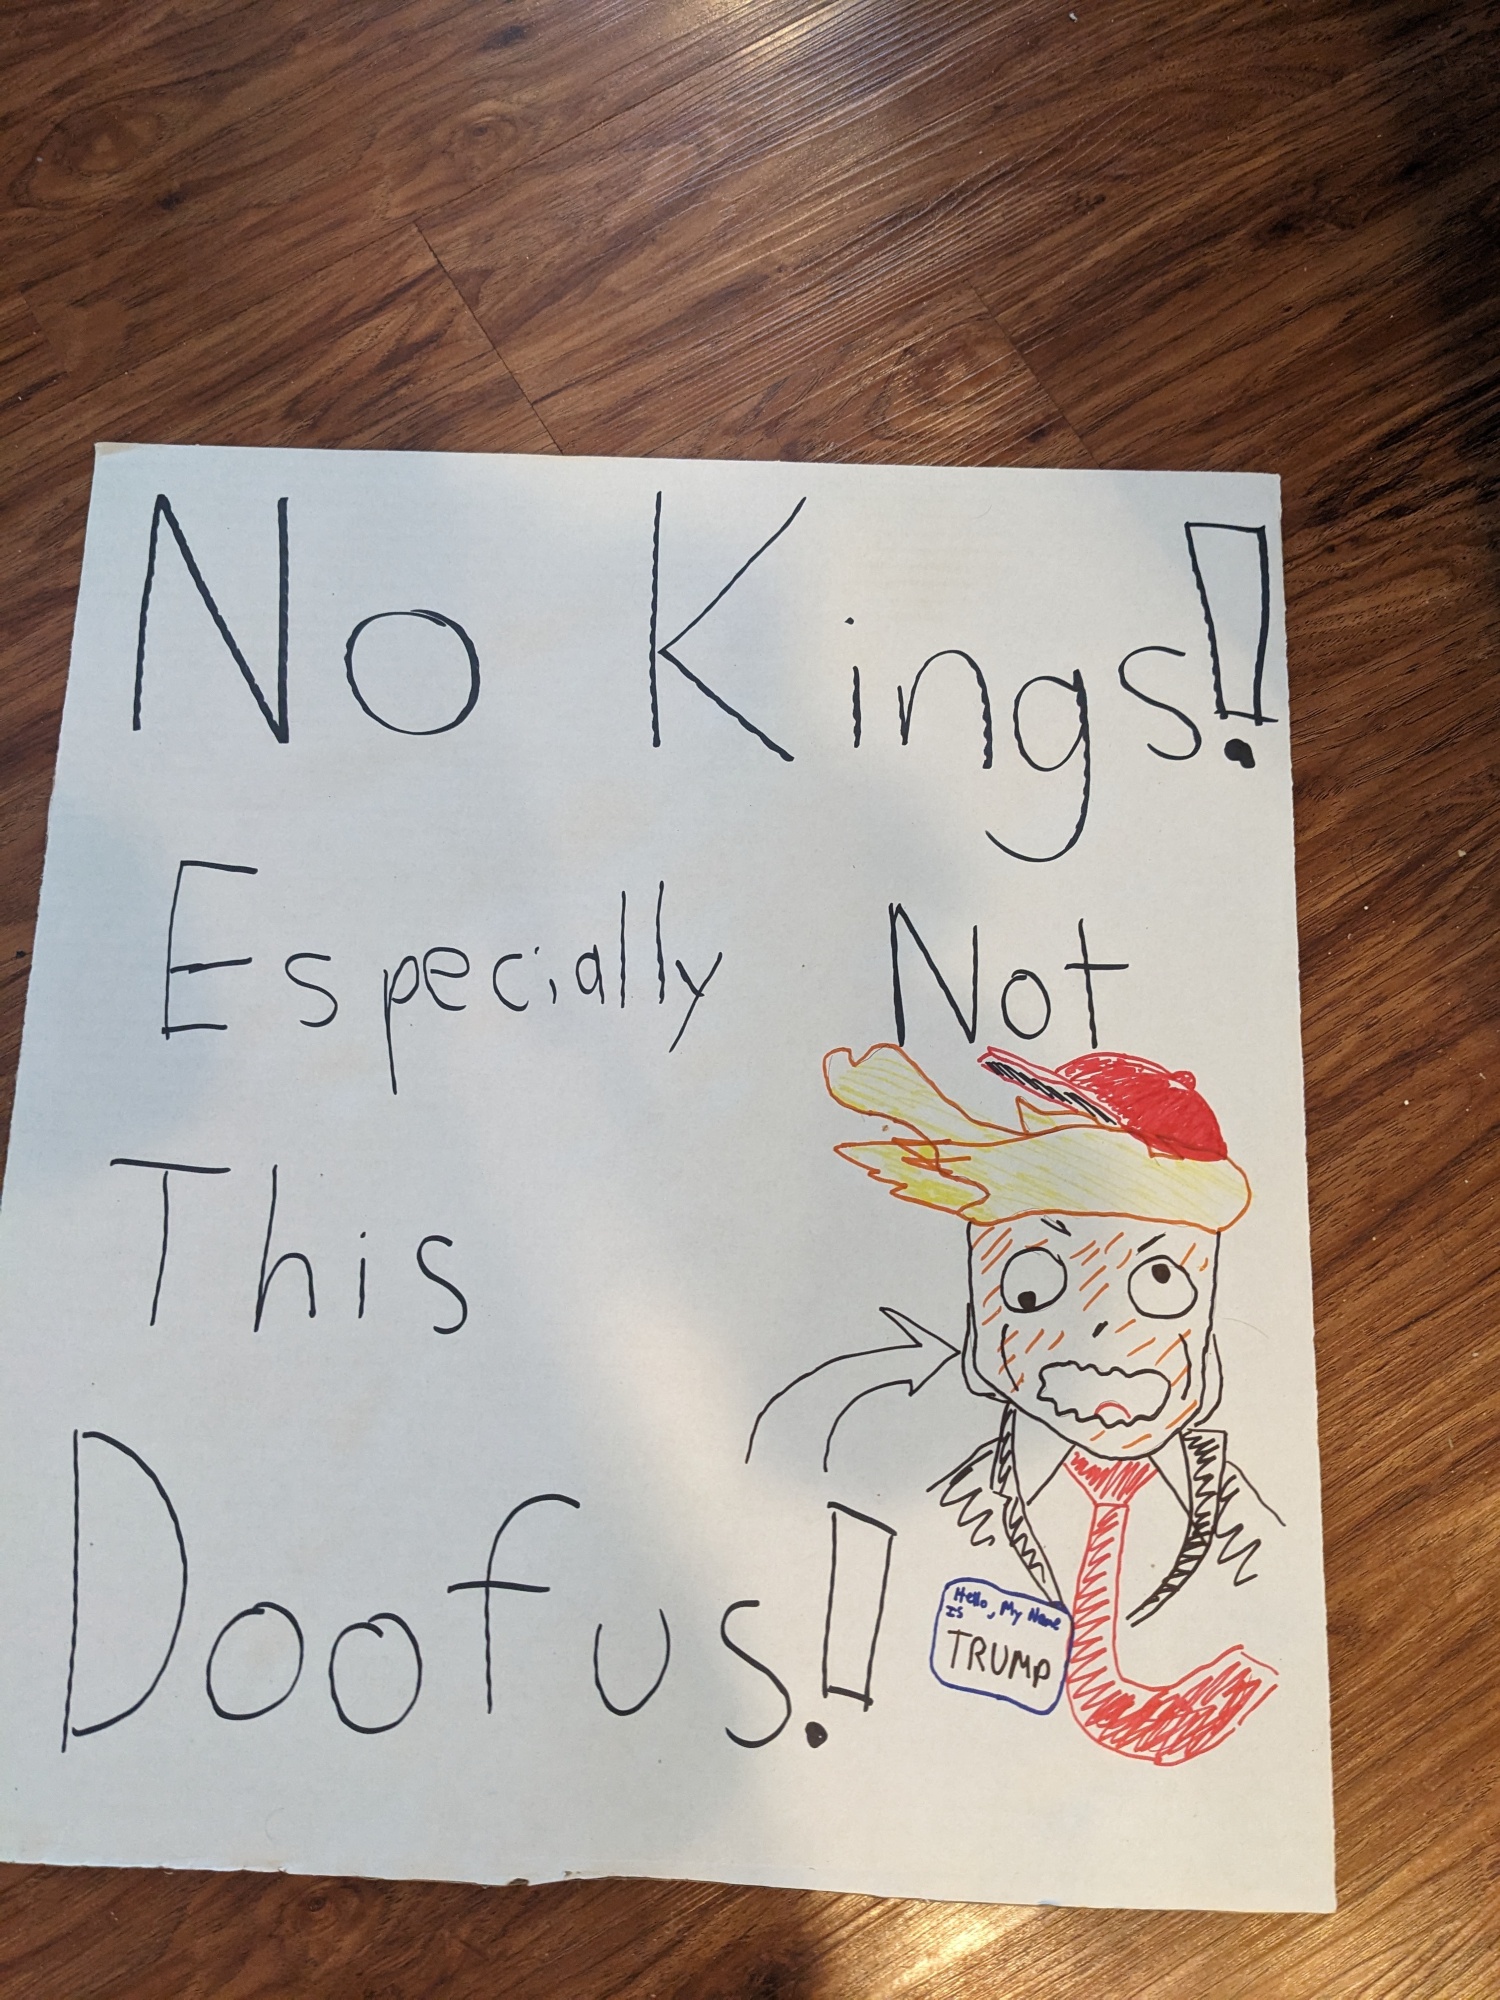 No Kings!
Especially Not
This
Doofus!
Hello, My Name
Is
TRUMP